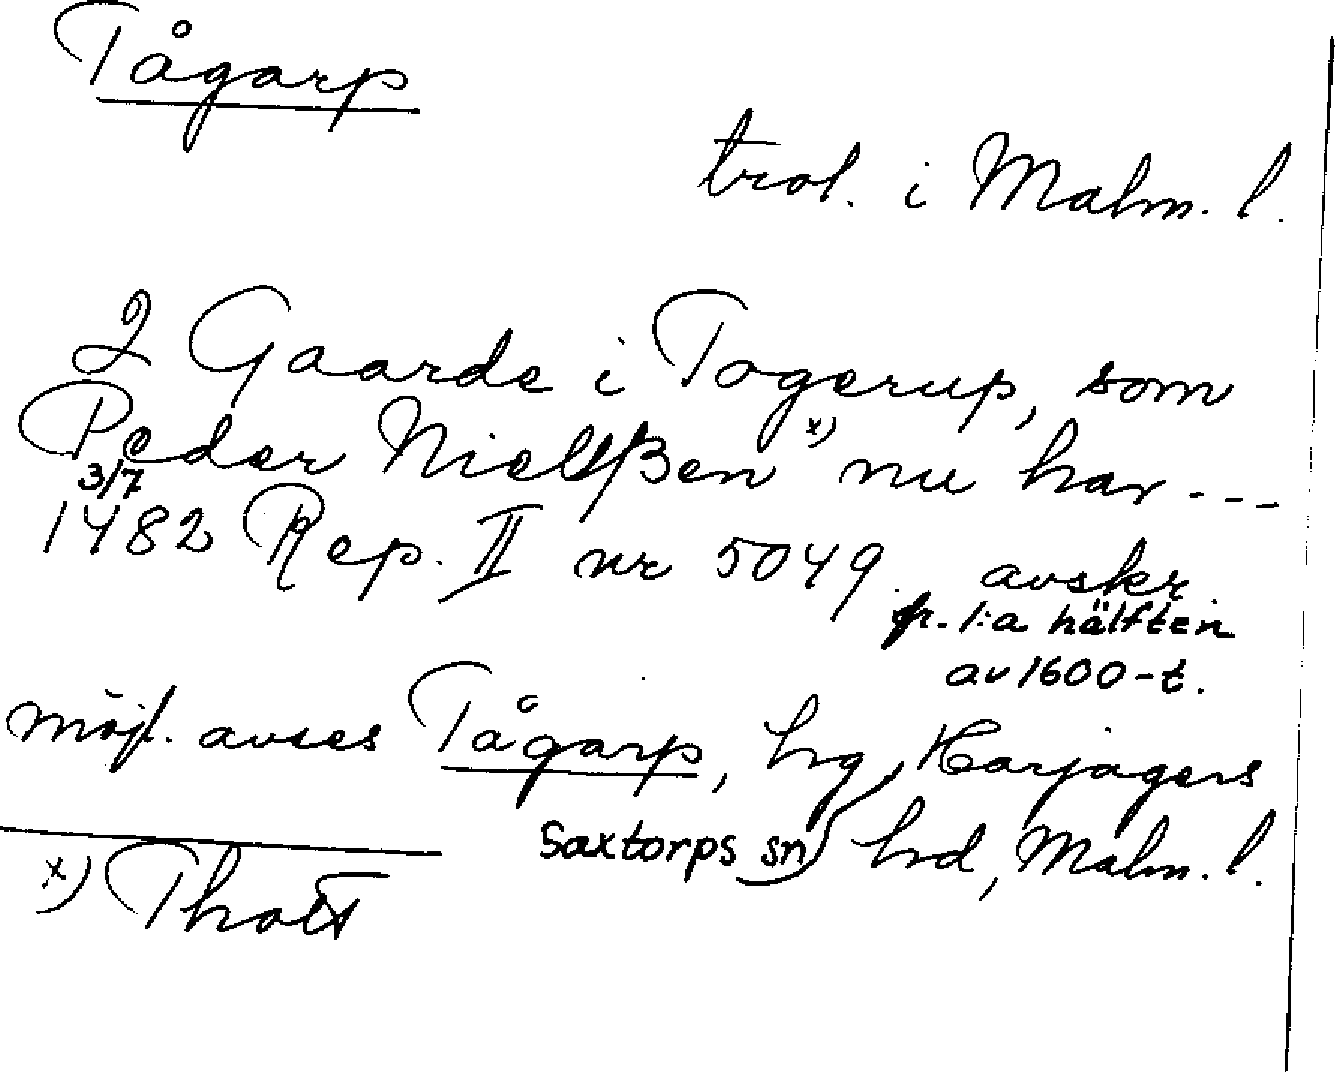 Tågarp
trol. i Malm. l.
2 Gaarde i Togerup, som
Peder Nielßen x) nu har ---
3/7
1482 Rep. II nr 5049. avskr.
fr. 1:a hälften
av 1600-t.
möjl. avses Tågarp, hrg, Harjagers
Saxtorps sn hrd, Malm. l.
x) Thott